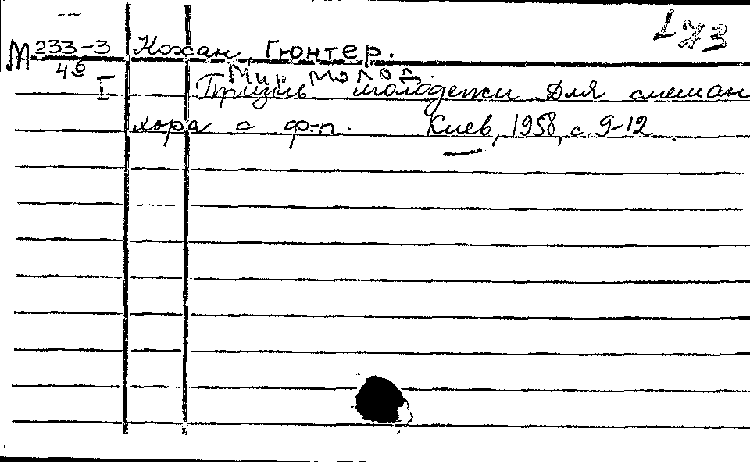 L73
М 233-3 Кохан, Гюнтер.
46
I Мир молод.
Призыв молодежи Для смешан
хора с ф-п. Киев, 1958, с 9-12